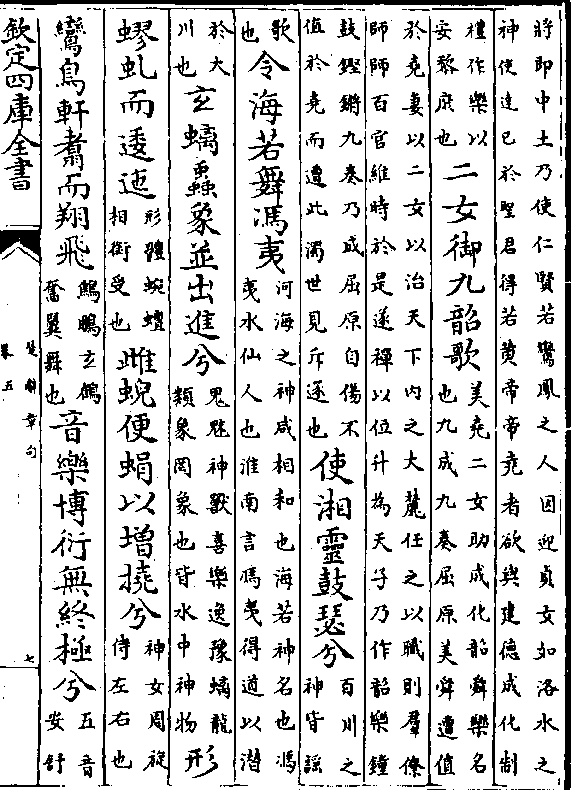 將即中土乃使仁賢若鸞鳳之人因迎貞女如洛水之
神使達已於聖君得若黃帝帝堯者欲與建德成化制
禮作樂以安黎庶也二女御九韶歌美堯二女助成化韶舜樂名也九成九奏屈原美舜遭值
於堯妻以二女以治天下内之大麓任之以職則羣僚
師師百官維時於是遂禪以位升為天子乃作韶樂鐘
鼓鏗鏘九奏乃成屈原自傷不值於堯而遭此濁世見斥逐也使湘靈鼓瑟兮百川之神皆謡
歌也令海若舞馮夷河海之神咸相和也海若神名也馮夷水仙人也淮南言馮夷得道以潛
於大川也玄螭蟲象並出進兮鬼魅神獸喜樂逸豫螭龍類象罔象也皆水中神物形
蟉虬而逶迤形體蜿蟺相銜受也雌蜺便蜎以増撓兮神女周旋侍左右也
鸞鳥軒翥而翔飛鷦鵬玄鶴奮翼舞也音樂博衍無終極兮五音安舒
欽定四庫全書
楚辭章句
卷五
七